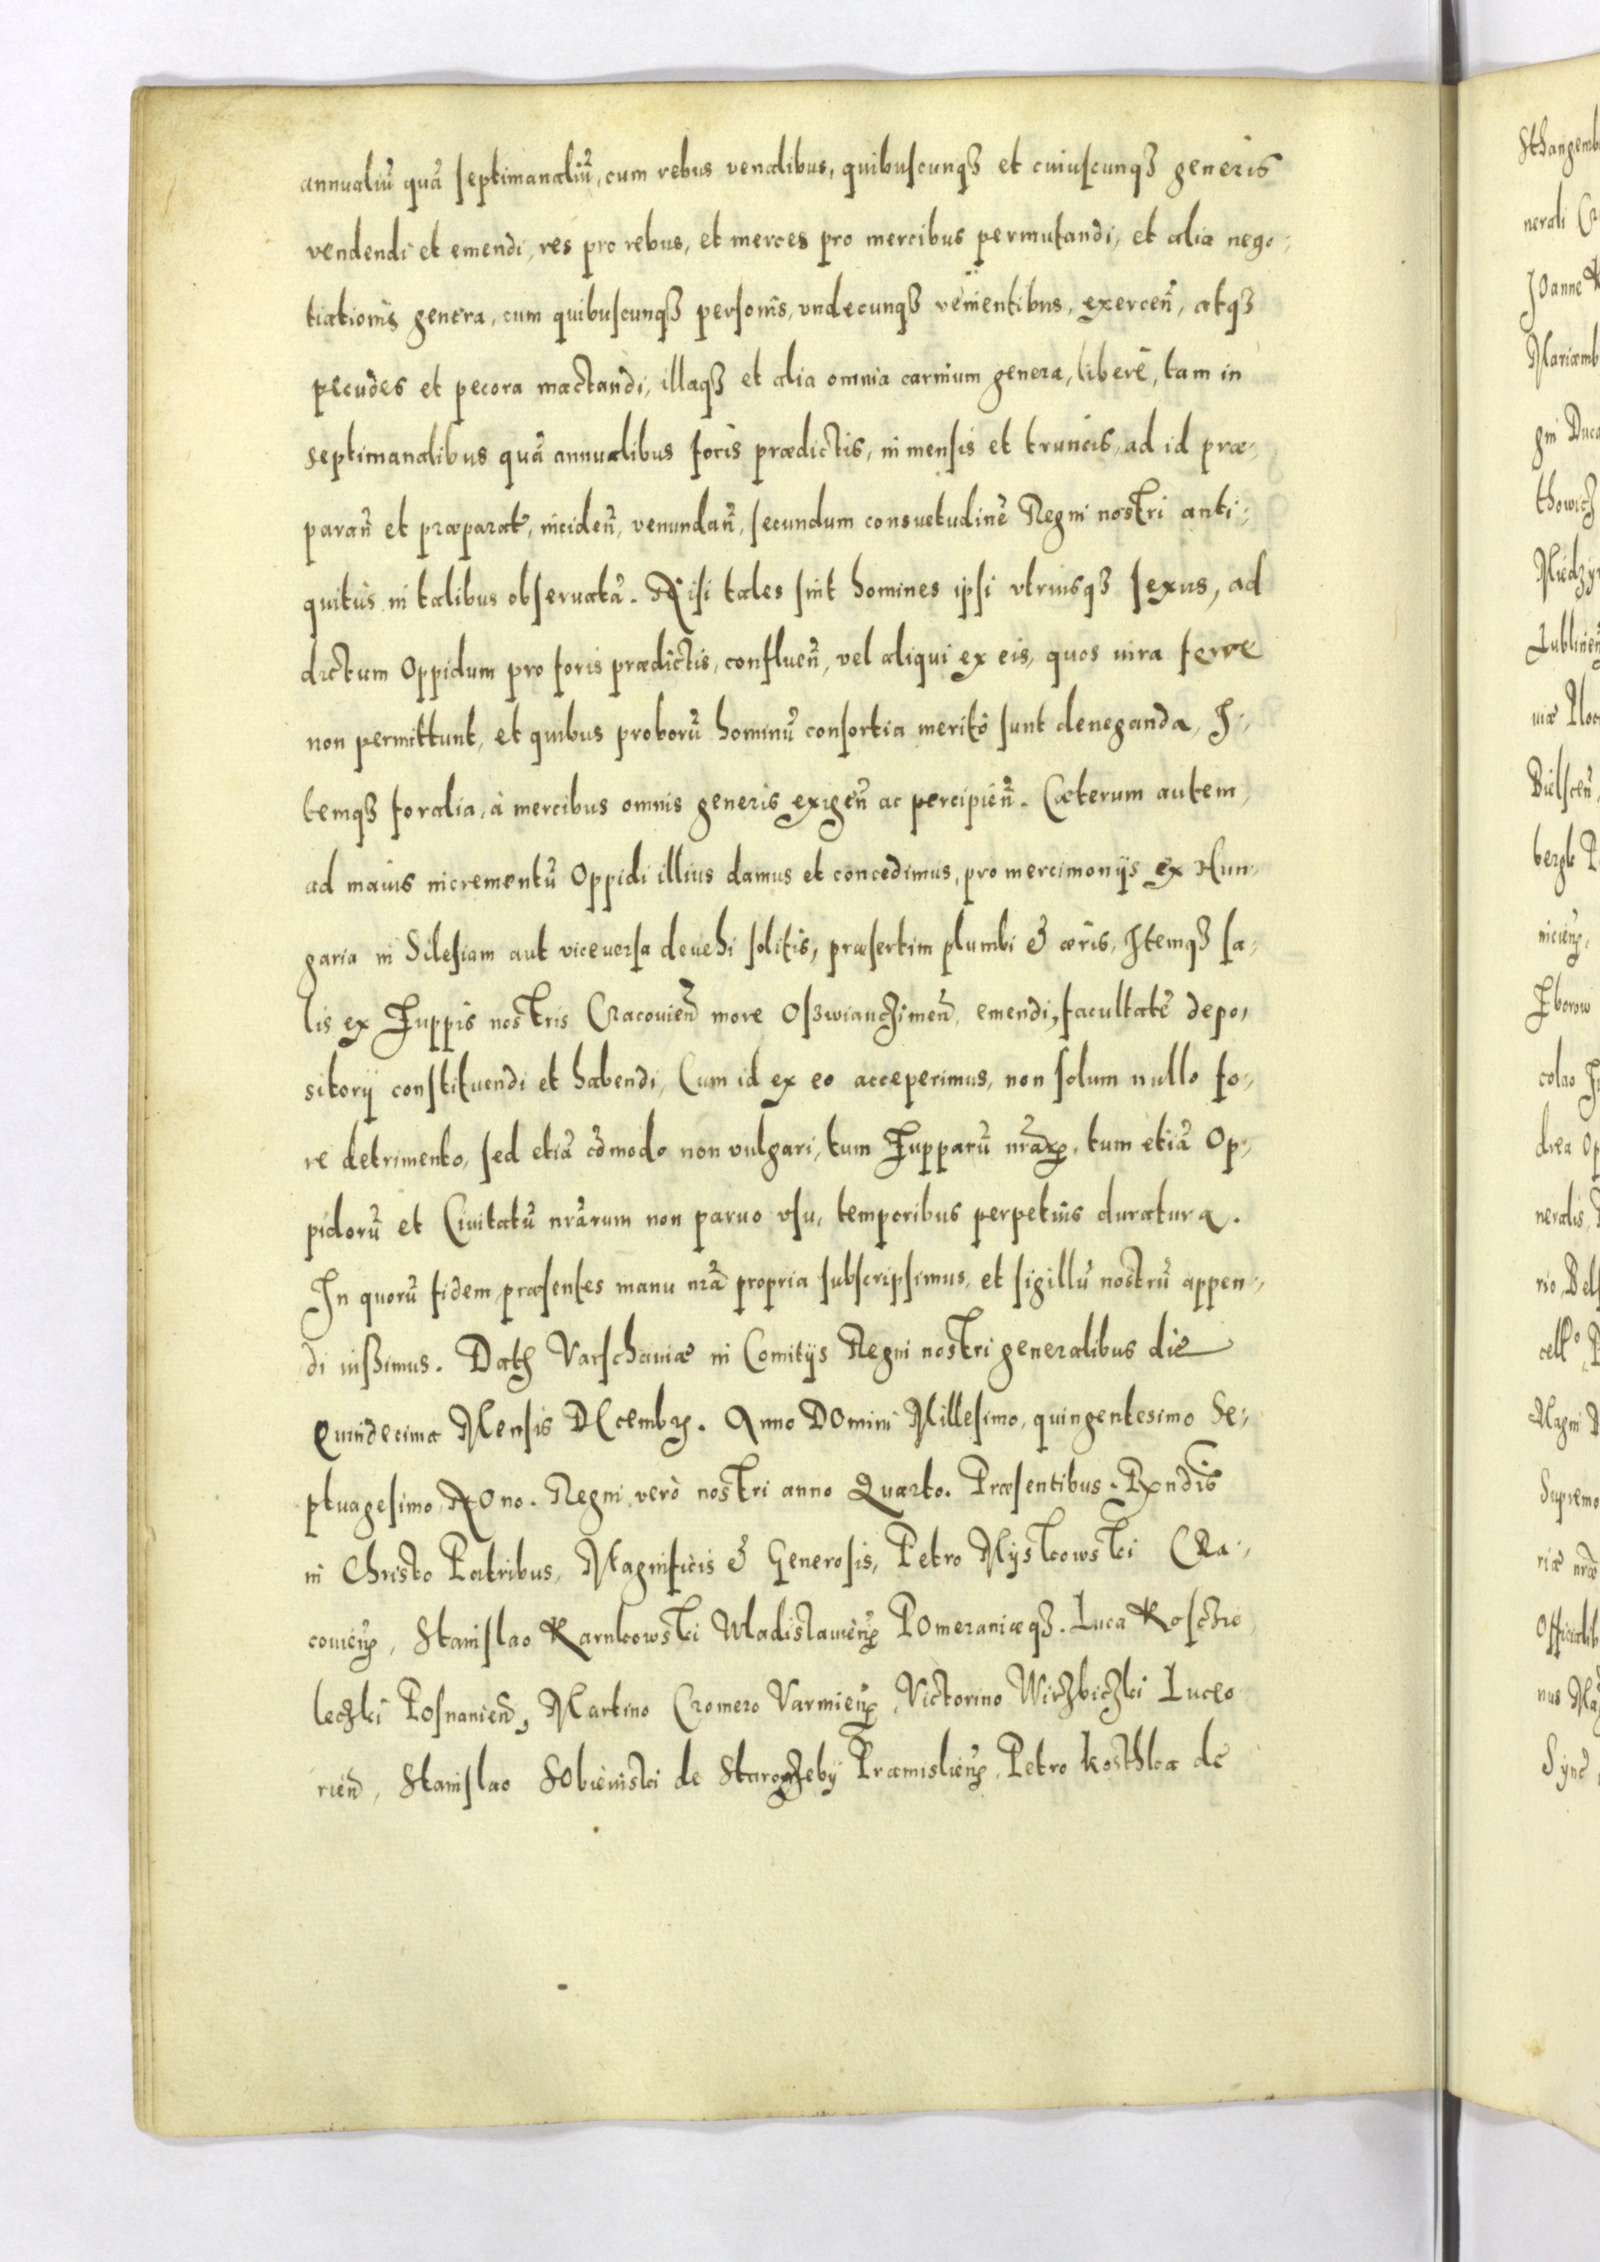 annualiũ quã septimanaliũ, cum rebus venalibus, quibuscunqꝫ et cuiuscunqꝫ generis
vendendi et emendi, res pro rebus, et merces pro mercibus permutandi, et alia nego-
tiationis genera, cum quibuscunqꝫ personis, vndecunqꝫ venientibus, exercen̄, atqꝫ
pecudes et pecora mactandi, illaqꝫ et alia omnia carnium genera, liberè, tam in
septimanalibus quã annualibus foris prædictis, in mensis et truncis, ad id præ-
paran̄ et præparat, inciden̄, venundan̄, secundum consuetudinẽ Regni nostri anti-
quitùs in talibus obseruatã. Nisi tales sint homines ipsi vtriusqꝫ sexus, ad
dictum Oppidum pro foris prædictis, confluen̄, vel aliqui ex eis, quos iura ferre
non permittunt, et quibus proborũ hominũ consortia meritò sunt deneganda, I-
temqꝫ foralia, à mercibus omnis generis exigen̄ ac percipien̄. Cæterum autem,
ad maius incrementũ Oppidi illius damus et concedimus, pro mercimonijs ex Hun-
garia in Silesiam aut viceuersa deuehi solitis, præsertim plumbi & æris, Itemqꝫ sa-
lis ex Zuppis nostris Cracouien̄ more Oswianczimen̄, emendi, facultatẽ depo-
sitorij constituendi et habendi, Cum id ex eo acceperimus, non solum nullo fo-
re detrimento, sed etiã cõmodo non vulgari, tum Zupparũ nr̃aꝝ, tum etiã Op-
pidorũ et Ciuitatũ nr̃arum non paruo vsu, temporibus perpetuis duratura.
In quorũ fidem præsentes manu nr̃a propria subscripsimus, et sigillũ nostrũ appen-
di iussimus. Datꝫ Varschauiæ in Comitijs Regni nostri generalibus die
Quindecima Mensis DEcembrꝫ. Anno DOmini Millesimo, quingentesimo Se-
ptuagesimo NOno. Regni verò nostri anno Quarto. Præsentibus. Rx̃ndis
in Christo Patribus, Magnificis & Generosis, Petro Myskowski CRa-
couien̄, Stanislao Karnkowski Wladislauien̄ POmeraniæqꝫ. Luca Koscie
leczki POsnanien̄, Martino Cromero Varmien̄, Victorino Wirzbiczki Luceo
rien̄, Stanislao SObieiuski de Starozreby Præmislien̄, Petro Kosthka de